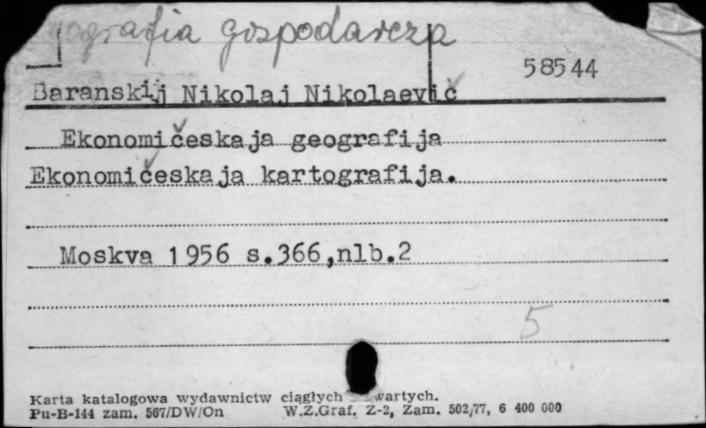 gospodarcza
58544
Baranskij Nikolaj Nikolaevič
Ekonomičeskaja geografija
Ekonomičeskaja kartografija.
Moskva 1956 s.366,nlb.2
5
Karta katalogowa wydawnictw ciągłych wartych.
Pu-B-144 zam. 567/DW/On W.Z.Graf. Z-2, Zam. 502/77, 6 400 000